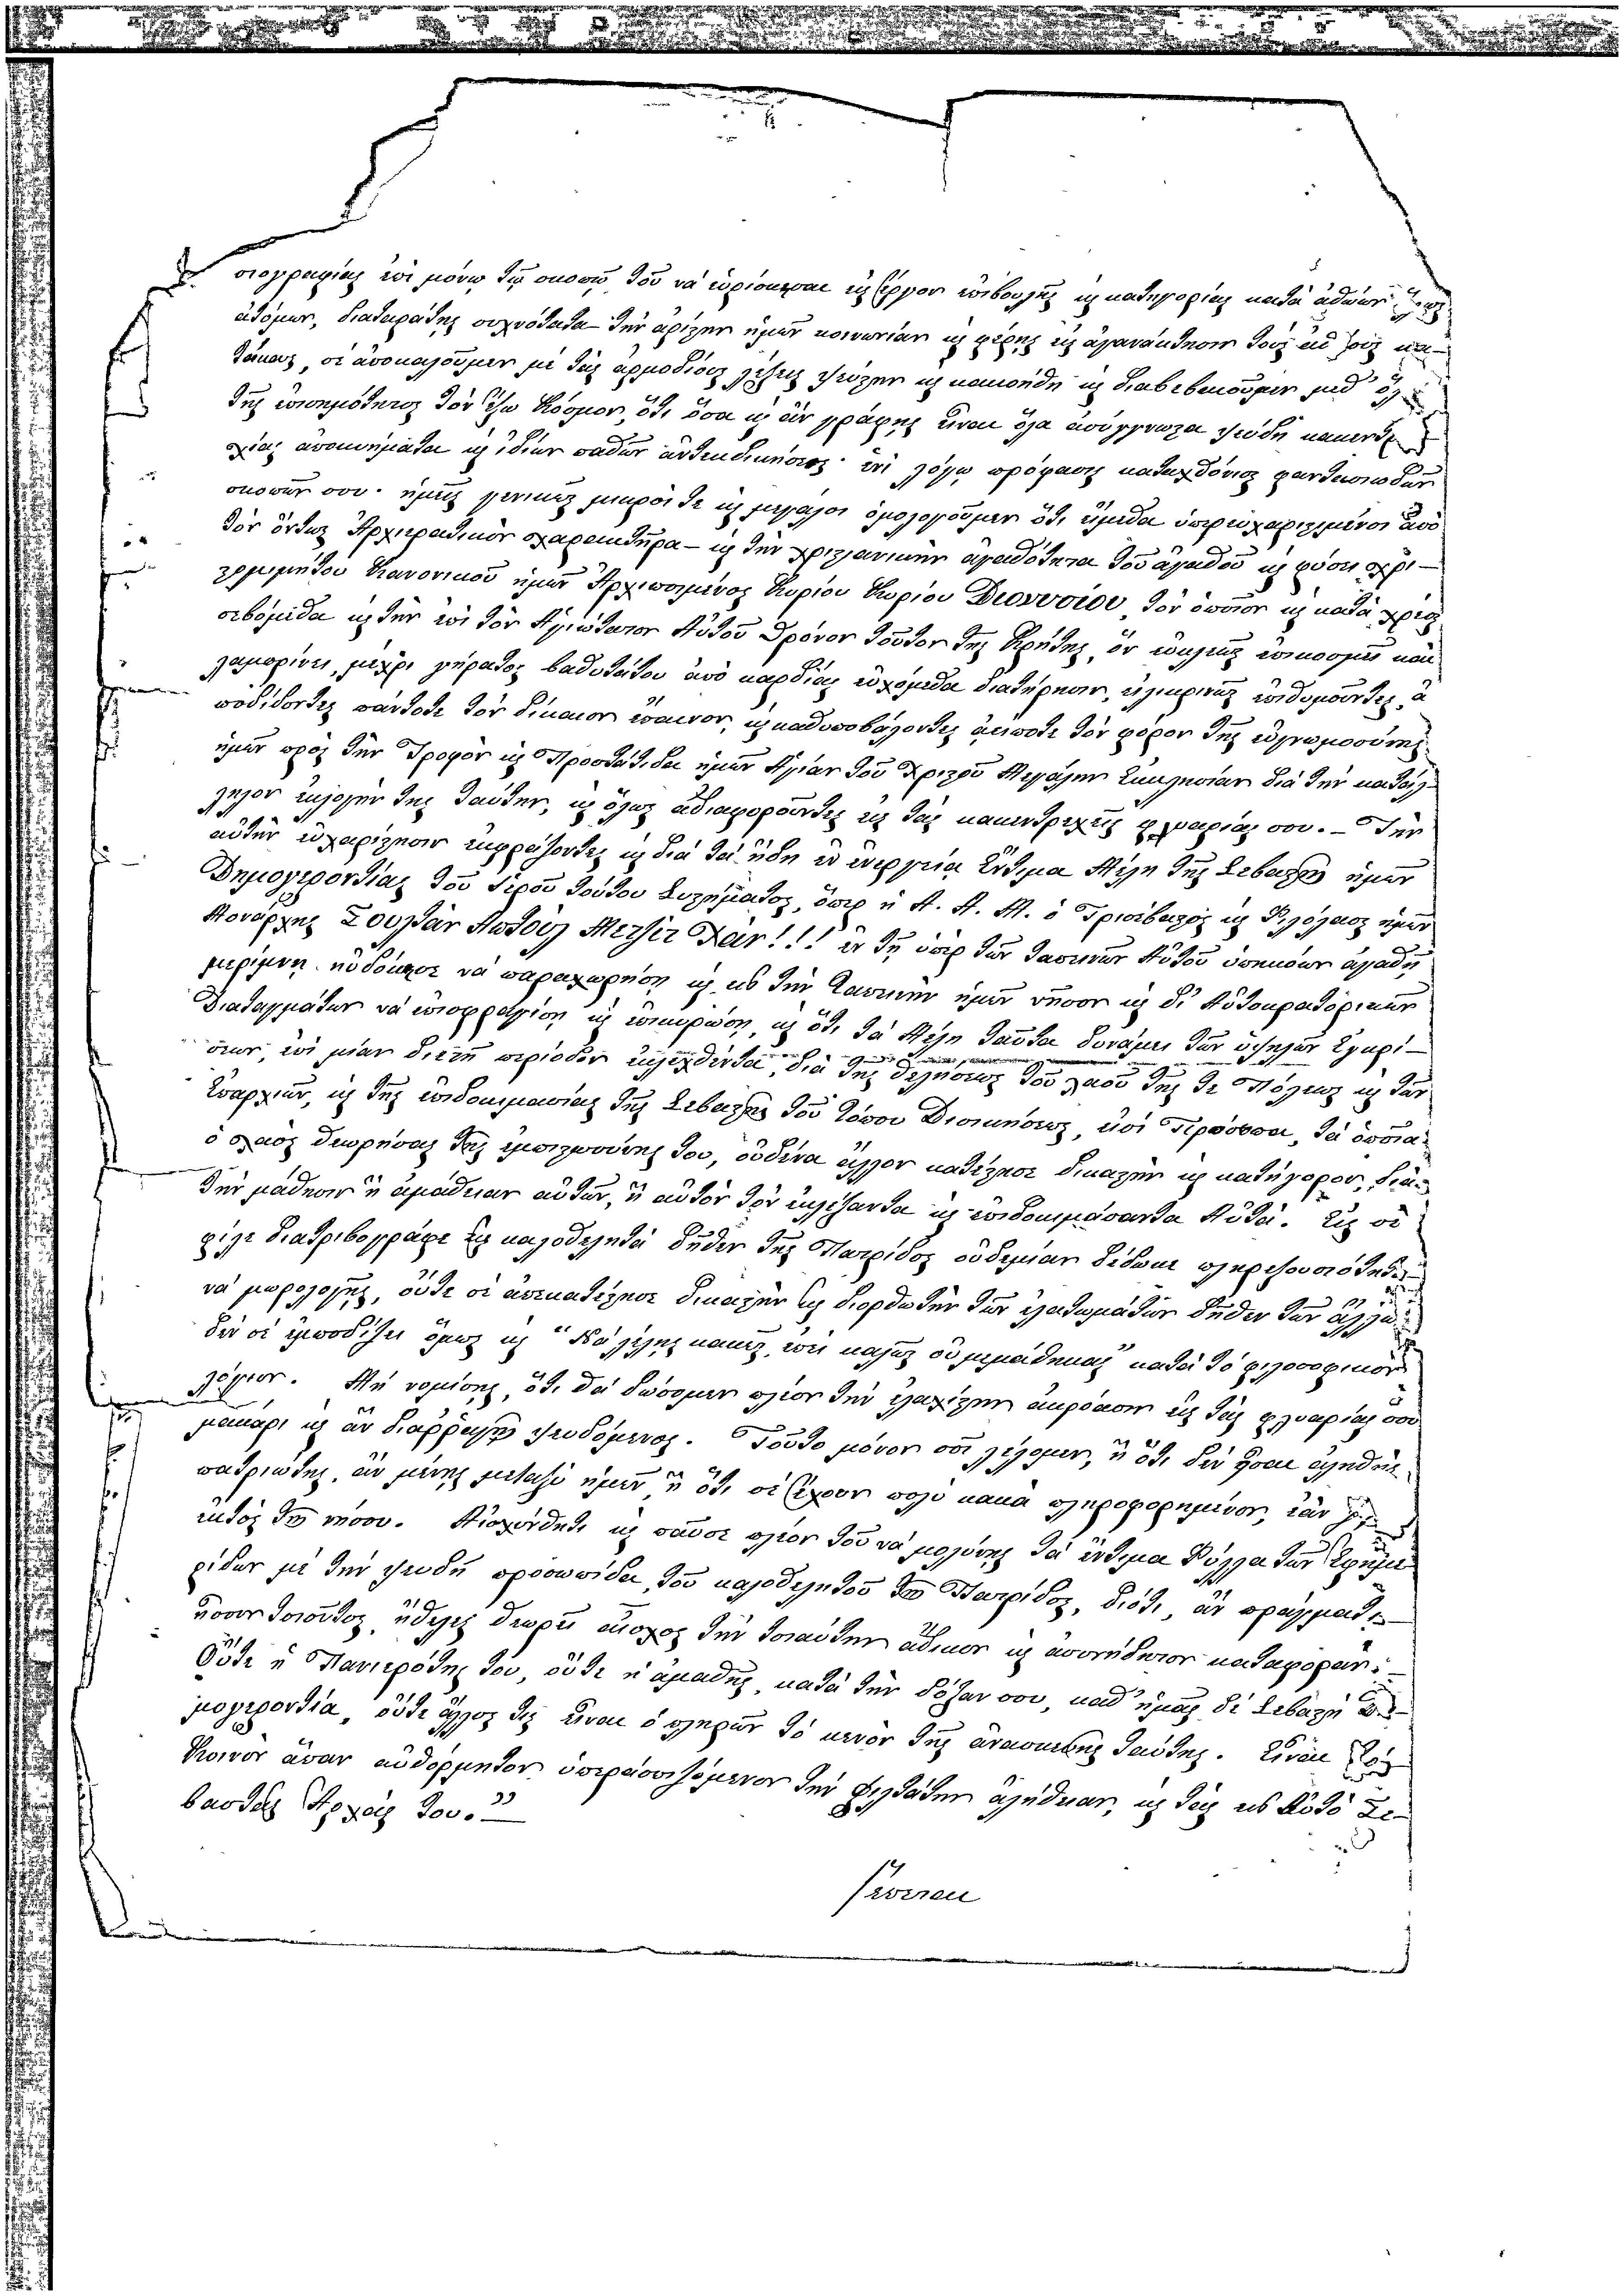 σιογραφίας ἐπὶ μόνῳ τῷ σκοπῷ τοῦ νὰ εὑρίσκεσαι εἰς ἔργον ἐπιβουλῆς καὶ κατηγορίας κατὰ ἀθώων
ἀτόμων, διαταράττῃς συχνότατα τὴν ἀρίστην ἡμῶν κοινωνίαν καὶ φέρῃς εἰς ἀγανάκτησιν τοὺς
τοίκους, σὲ ἀποκαλοῦμεν μὲ τὰς ἁρμοδίους λέξεις ψεύστην καὶ κακοήθη καὶ διαβεβαιοῦμεν μεθ' ὅλης
τῆς ἐπισημότητος τὸν ἔξω Κόσμον, ὅτι ὅσα καὶ ἂν γράφῃς εἶναι ὅλα ἀσύγγνωστα ψεύδη κακεντρε
χείας ἀποκυήματα καὶ ἰδίων παθῶν ἀντεκδικήσεως· ἐπὶ λόγῳ προφάσεως καταχθονίου φαντασιωδῶν
σκοπῶν σου· ἡμεῖς γενικῶς μικροί τε καὶ μεγάλοι ὁμολογοῦμεν ὅτι εἴμεθα ὑπερευχαριστημένοι ἀπὸ
τὸν ὄντως Ἀρχιερατικὸν χαρακτῆρα – καὶ τὴν χριστιανικὴν ἀγαθότητα τοῦ ἀγαθοῦ καὶ φύσει χρη–
στομιμήτου Κανονικοῦ ἡμῶν Ἀρχιποιμένος Κυρίου Κυρίου Διονυσίου, τὸν ὁποῖον καὶ κατὰ χρέος
σεβόμεθα καὶ τὴν ἐπὶ τὸν Ἁγιώτατον Αὐτοῦ Θρόνον τοῦτον τῆς Κρήτης, ὃν ἐπαξίως ἐπικοσμεῖ καὶ
λαμπρύνει, μέχρι γήρατος βαθυτάτου ἀπὸ καρδίας εὐχόμεθα διατήρησιν, εἰλικρινῶς ἐπιθυμοῦντες, ἀ
ποδίδοντες πάντοτε τὸν δίκαιον ἔπαινον, καὶ καθυποβάλλοντες ἀείποτε τὸν φόρον τῆς εὐγνωμοσύνης
ἡμῶν πρὸς τὴν Τροφὸν καὶ Προστάτιδα ἡμῶν Ἁγίαν τοῦ Χριστοῦ Μεγάλην Ἐκκλησίαν διὰ τὴν κατάλ–
ληλον ἐκλογήν της ταύτην, καὶ ὅλως ἀδιαφοροῦντες εἰς τὰς κακεντρεχεῖς φλυαρίας σου. – Τὴν
αὐτὴν εὐχαρίστησιν ἐκφράζοντες καὶ διὰ τὰ ἤδη ἐν ἐνεργείᾳ Ἔντιμα Μέλη τῆς Σεβαστῆς ἡμῶν
Δημογεροντίας τοῦ Ἱεροῦ τούτου Συστήματος, ὅπερ ἡ Α. Α. Μ. ὁ Τρισέβαστος καὶ Φιλόλαος ἡμῶν
Μονάρχης Σουλτὰν Ἀπδοὺλ Μετζὶτ Χάν!!! ἐν τῇ ὑπὲρ τῶν ταπεινῶν Αὐτοῦ ὑπηκόων ἀγαθῇ
μερίμνῃ ηὐδόκησε νὰ παραχωρήσῃ καὶ εἰς τὴν ταπεινὴν ἡμῶν νῆσον καὶ δι' Αὐτοκρατορικῶν
Διαταγμάτων νὰ ἐπισφραγίσῃ καὶ ἐπικυρώσῃ, καὶ ὅτι τὰ Μέλη ταῦτα δυνάμει τῶν ὑψηλῶν Ἐγκρί–
σεων, ἐπὶ μίαν διετῆ περίοδον ἐκλεχθέντα, διὰ τῆς θελήσεως τοῦ λαοῦ τῆς τε Πόλεως καὶ τῶν
Ἐπαρχιῶν, καὶ τῆς ἐπιδοκιμασίας τῆς Σεβαστῆς τοῦ τόπου Διοικήσεως, εἰσὶ Πρόσωπα, τὰ ὁποῖα
ὁ λαὸς θεωρήσας τῆς ἐμπιστοσύνης του, οὐδένα ἄλλον κατέστησε δικαστὴν καὶ κατήγορον, διὰ
τὴν μάθησιν ἢ ἀμάθειαν αὐτῶν, ἢ αὐτὸν τὸν ἐκλέξαντα καὶ ἐπιδοκιμάσαντα Αὐτά. Εἰς σὲ
φίλε διατριβογράφε καὶ καλοθελητὰ δῆθεν τῆς Πατρίδος οὐδεμίαν δίδωσι πληρεξουσιότητα
νὰ μωρολογῇς, οὔτε σὲ ἀποκατέστησε δικαστὴν καὶ διορθωτὴν τῶν ἐλαττωμάτων δῆθεν τῶν ἄλλων
δὲν σὲ ἐμποδίζει ὅμως καὶ "Νὰ λέγῃς κακῶς, ἐπεὶ καλῶς οὐ μεμάθηκας" κατὰ τὸ φιλοσοφικὸν
λόγιον. Μὴ νομίσῃς, ὅτι θὰ δώσωμεν πλέον τὴν ἐλαχίστην ἀκρόασιν εἰς τὰς φλυαρίας σου
μακάρι καὶ ἂν διαρραγῇς ψευδόμενος. Τοῦτο μόνον σοὶ λέγομεν, ἢ ὅτι δὲν ἦσαι ἀληθὴς
πατριώτης, ἂν μένῃς μεταξὺ ἡμῶν, ἢ ὅτι σὲ ἔχουν πολὺ κακὰ πληροφορημένον, ἐὰν
ἐκτὸς τῆς νήσου. Αἰσχύνθητι καὶ παῦσε πλέον τοῦ νὰ μολύνῃς τὰ ἔντιμα Φύλλα τῶν Ἐφημε
ρίδων μὲ τὴν ψευδῆ προσωπίδα, τοῦ καλοθελητοῦ τῆς Πατρίδος, διότι, ἂν πραγματι–
ἦσουν τοιοῦτος, ἤθελες θεωρεῖ αἶσχος τὴν τοιαύτην ἄδικον καὶ ἀσυνείδητον καταφοράν:–
Οὔτε ἡ Πανιερότης του, οὔτε ἡ ἀμαθής, κατὰ τὴν δόξαν σου, καθ' ἡμᾶς δὲ Σεβαστὴ Δη–
μογεροντία, οὔτε ἄλλος τις εἶναι ὁ πληρῶν τὸ κενὸν τῆς ἀνασκευῆς ταύτης. Εἶναι
Κοινὸν ἅπαν αὐθόρμητον ὑπερασπιζόμενον τὴν φιλτάτην ἀλήθειαν, καὶ τὰς εἰς Αὐτὸ Σε–
βαστὰς Ἀρχάς του."–
Ἕπονται